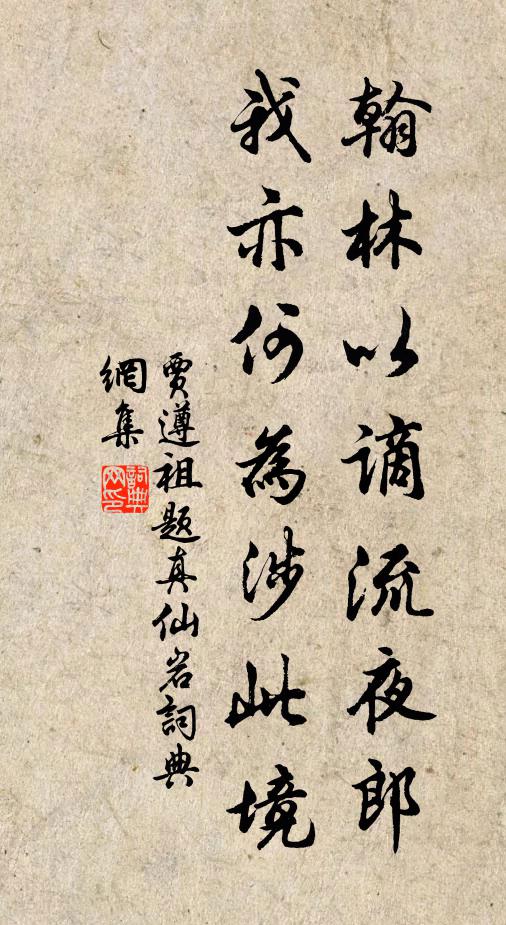 翰林以謫流夜郎
我亦何為涉此境
賈遵祖题真仙岩詞典
網集
詞典
网印